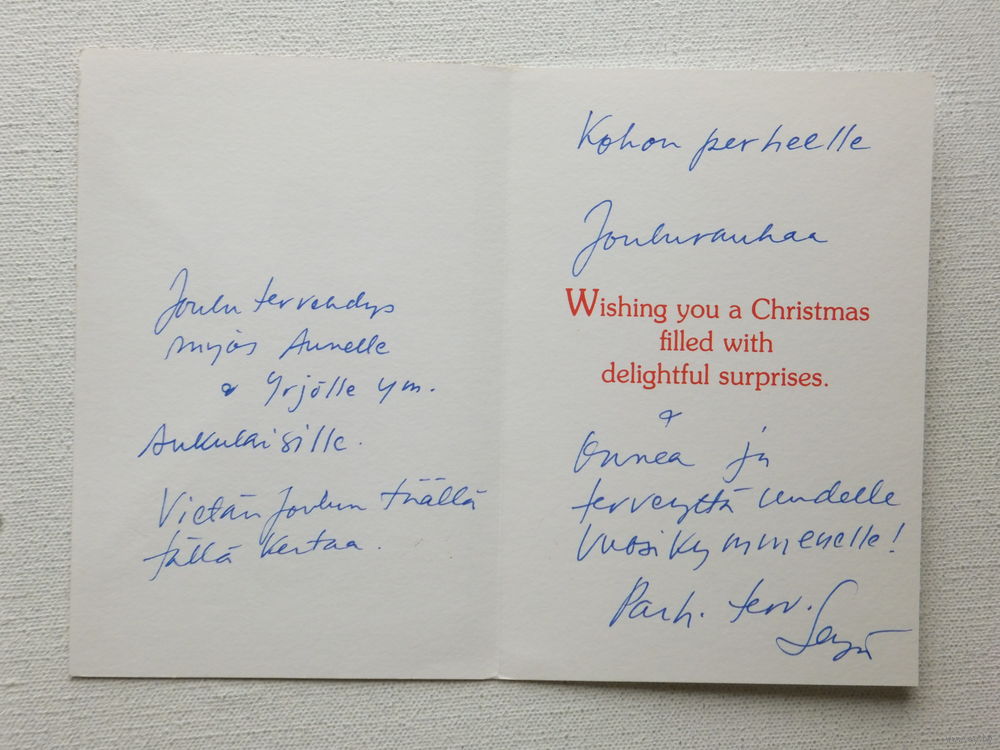 Joulutervehdys
myös Aunelle
& Yrjölle ym.
sukulaisille.
Vietän Joulun täällä
tällä kertaa.
Kohon perheelle
Joulurauhaa
Wishing you a Christmas
filled with
delightful surprises.
&
Onnea ja
terveyttä uudelle
vuosikymmenelle!
Parh. terv.